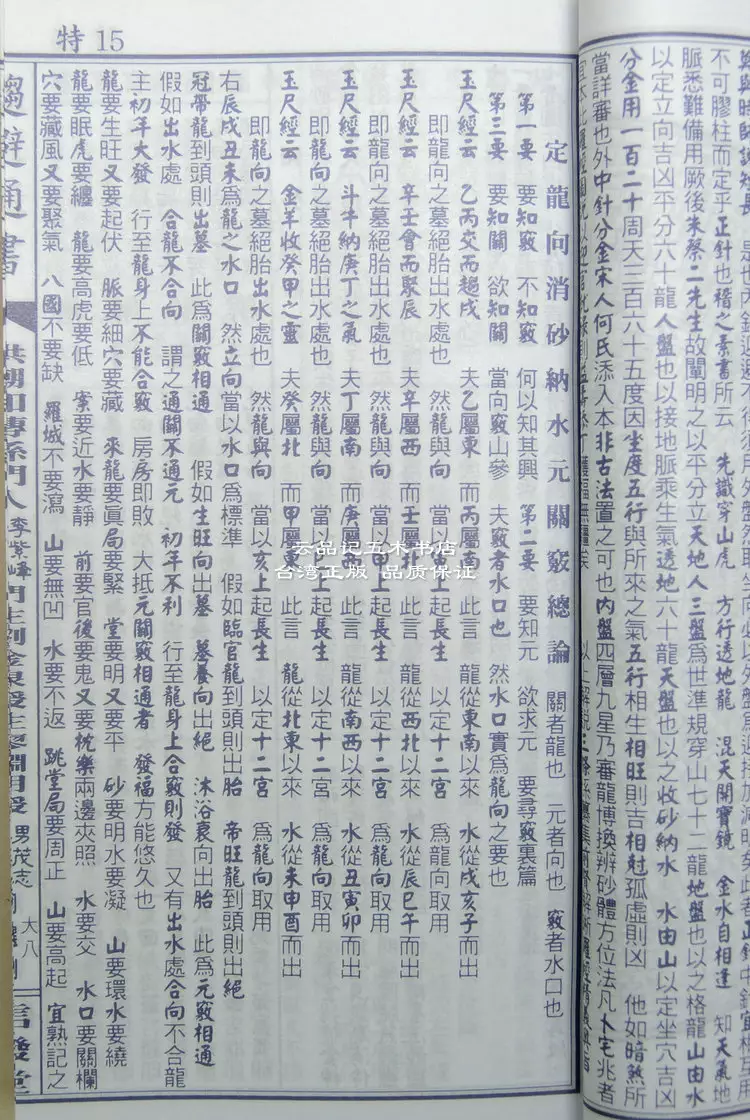 不可膠柱而定乎正針也楷之素書所云 先識穿山虎 方行透地龍 混天開寶鏡 金水自相逢 知天氣地
脈悉難備用厥後朱蔡二先生故闡明之以平分立天地人三盤為世準規穿山七十二龍地盤也以之格龍山由水
以定立向吉凶平分六十龍人盤也以接地脈乘生氣透地六十龍天盤也以之收砂納水 水由山以定坐穴吉凶
分金用一百二十 周天三百六十五度因坐度五行與所來之氣五行相生相旺則吉相尅孤虛則凶 他如暗煞所
當詳審也外中針分金宋人何氏添入本非古法置之可也內盤四層九星乃審龍博換辨砂體方位法凡卜宅兆者
特 15
定龍向消砂納水元關竅總論 關者龍也 元者向也 竅者水口也
第一要 要知竅 不知竅 何以知其興 第二要 要知元 欲求元 要尋竅裏篇
第三要 要知關 欲知關 當向竅山參 夫竅者水口也 然水口實為龍向之要也
玉尺經云 乙丙交而趨戌 夫乙屬東 而丙屬南 此言 龍從東南以來 水從戌亥子而出
即龍向之墓絕胎出水處也 然龍與向 當以甲上起長生 以定十二宮 為龍向取用
玉尺經云 辛壬會而聚辰 夫辛屬西 而壬屬北 此言 龍從西北以來 水從辰巳午而出
即龍向之墓絕胎出水處也 然龍與向 當以甲上起長生 以定十二宮 為龍向取用
玉尺經云 斗牛納庚丁之氣 夫丁屬南 而庚屬西 此言 龍從南西以來 水從丑寅卯而出
即龍向之墓絕胎出水處也 然龍與向 當以上起長生 以定十二宮 為龍向取用
玉尺經云 金羊收癸甲之靈 夫癸屬北 而甲屬東 此言 龍從北東以來 水從未申酉而出
即龍向之墓絕胎出水處也 然龍與向 當以亥上起長生 以定十二宮 為龍向取用
右辰戌丑未為龍之水口 然立向當以水口為標準 假如臨官龍到頭則出胎 帝旺龍到頭則出絕
冠帶龍到頭則出墓 此為關竅相通 假如生旺向出墓 墓養向出絕 沐浴衰向出胎 此為元竅相通
假如出水處 合龍不合向 謂之通關不通元 初年不利 行至龍身上合竅則發 又有出水處合向不合龍
主初年大發 行至龍身上不能合竅 房房即敗 大抵元關竅相通者 發福方能悠久也
龍要生旺又要起伏 脈要細穴要藏 來龍要眞局要緊 堂要明又要平 砂要明水要凝 山要環水要繞
龍要眠虎要纏 龍要高虎要低 案要近水要靜 前要官後要鬼又要枕樂兩邊夾照 水要交 水口要關欄
穴要藏風又要聚氣 八國不要缺 羅城不要瀉 山要無凹 水要不返 跳堂局要周正 山要高起 宜熟記之
趨避通書
李紫峰
男茂志
大八
云品记五术书店
台湾正版 品质保证